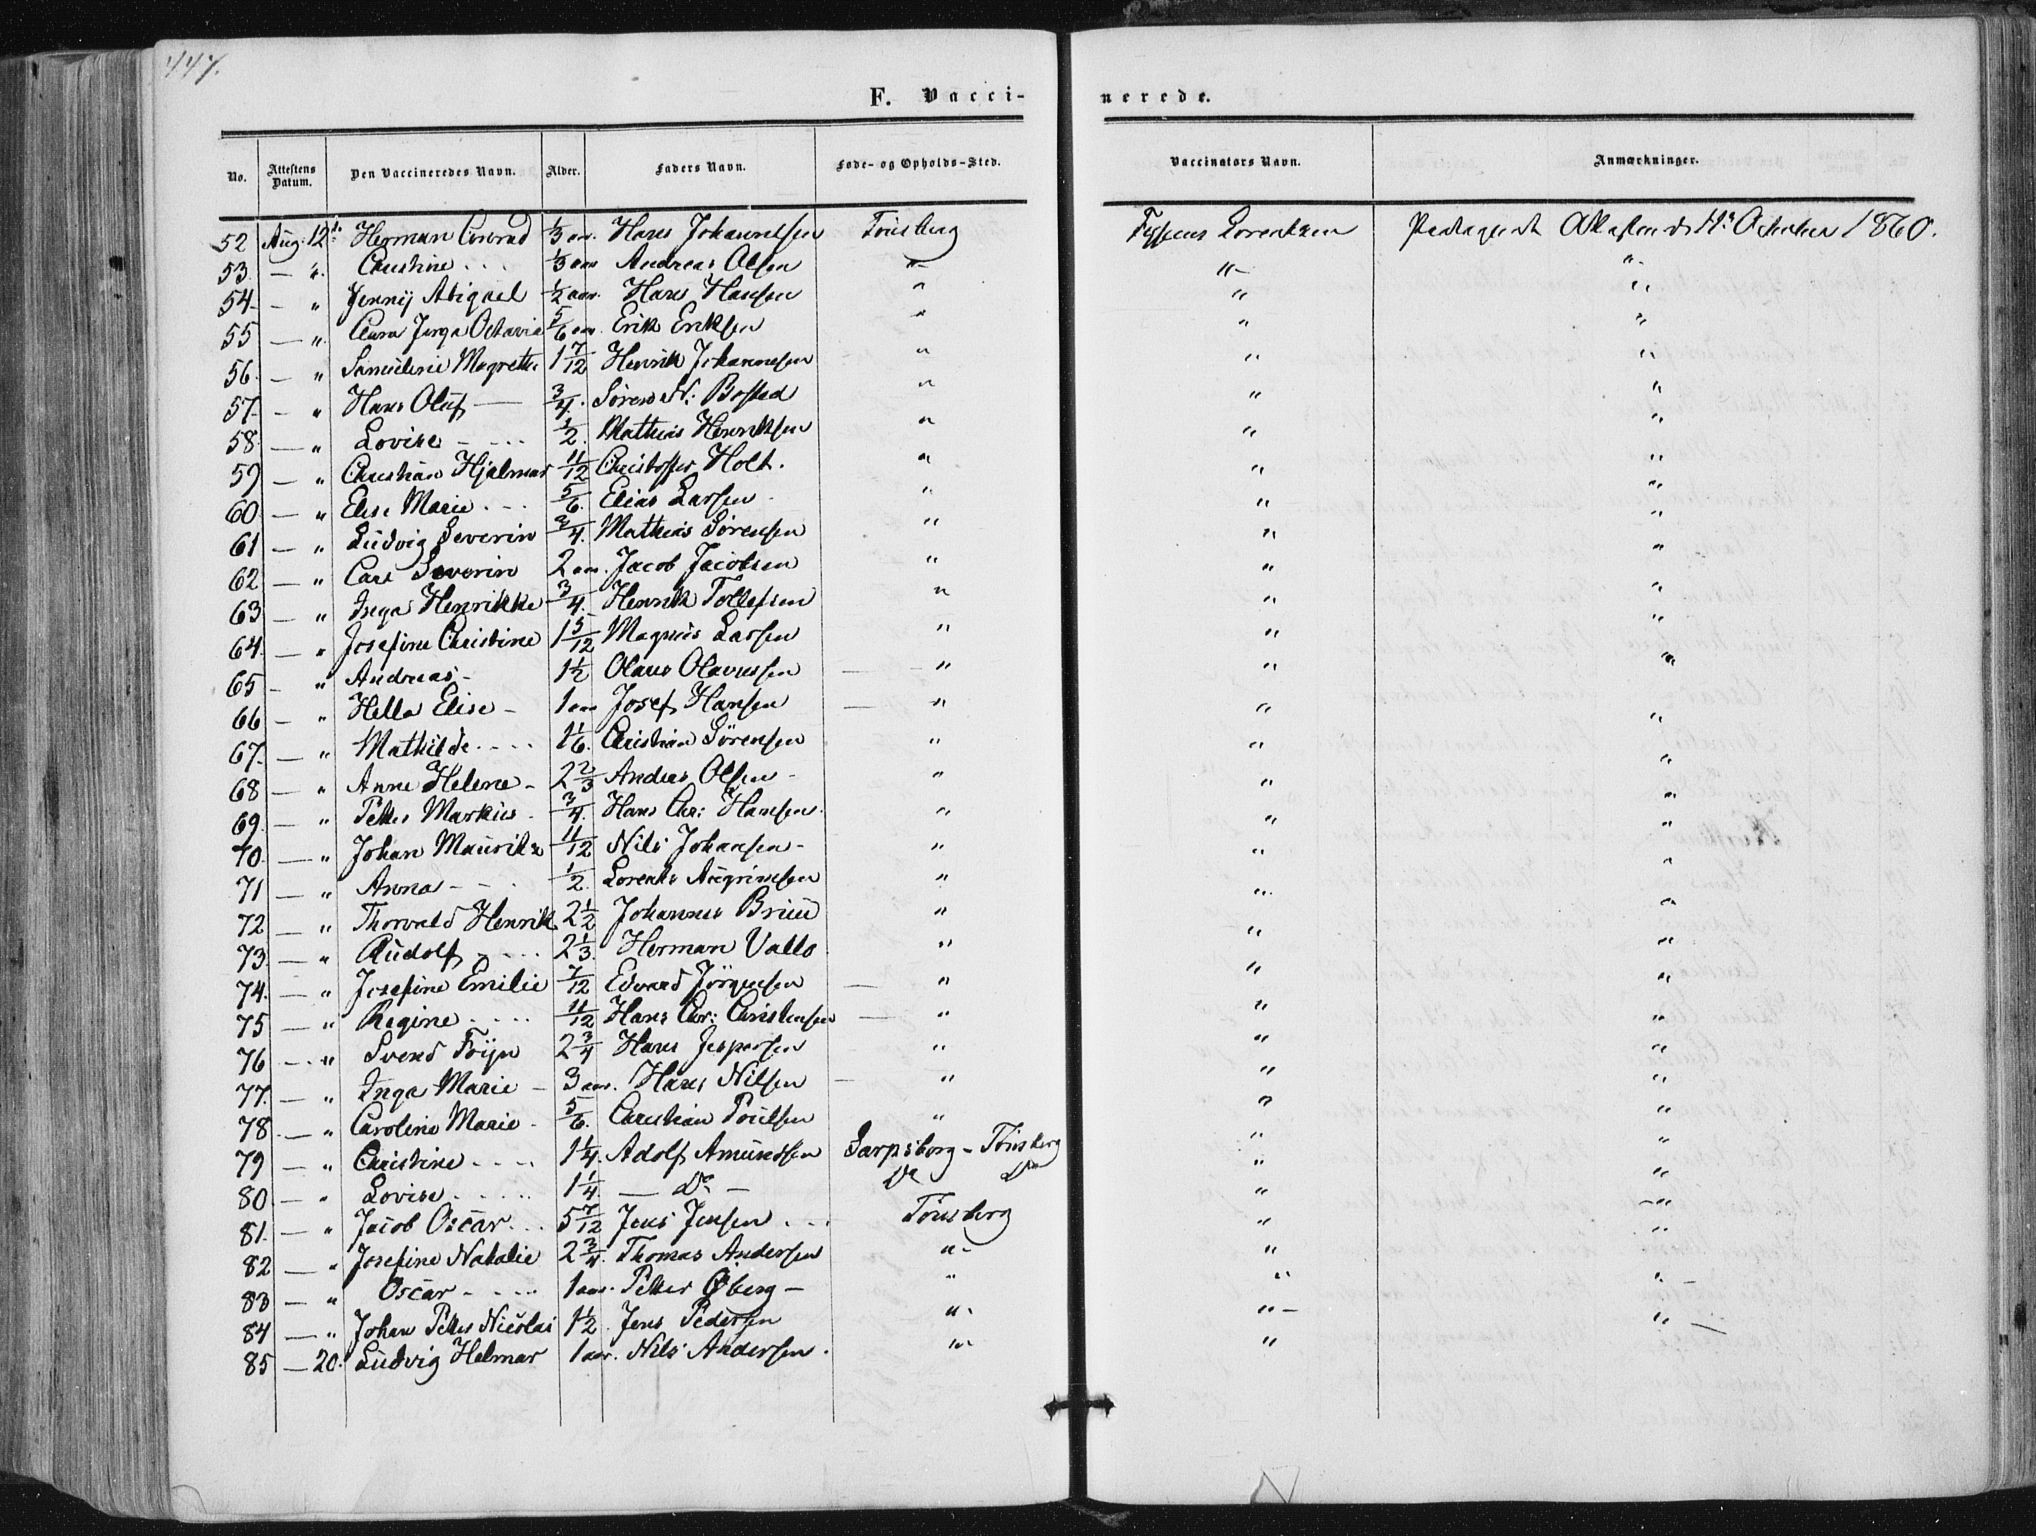 447.
F. Vacci- nerede.
No. Attestens Datum. Den Vaccineredes Navn. Alder. Faders Navn. Føde- og Opholds-Sted. Vaccinators Navn. Anmærkninger.
52 Aug: 12 Herman Conrad 1/3 aar. Hans Johannesen Tønsberg Lorentzen Attesten d. October 1860.
53. — " Christine 1/3 aar Andreas Olsen "- "- "-
54. — " Jenny Abigael 1/2 aar. Hans Hansen " " "
55 — " Octavia 5/6 aar. Erik Eriksen " " "
56. — " Magrethe 1 7/12 Henrik Johannesen " " "
57. — " Hans Oluf — 3/4. Søren N: Bosted " " "
58. — " Lovise 1/2. Mathias Henriksen " " "
59 — " Christian Hjalmar 11/12 Christoffer Holt. " " "
60 — " Elise Marie 5/6. Elias Larsen " " "
61 — " Ludvig Severin 3/4. Mathias Sørensen " " "
62 — " Carl Severin 2 aar. Jacob Jacobsen " " "
63 — " Inga Henrikke 3/4. Henrik Tollefsen " " "
64. — " Josefine Christine 1 5/12 Magnus Larsen " " "
65 — " Andreas - 1 1/2 Olaus Olavessen — " " "
66 — " Hella Elise - 1 aar Josef Hansen — " " "
67. — " Mathilde 1 1/6. Christian Sörensen " " "
68 — " Anne Helene - 2 2/3 Anders Olsen - " " "
69. — " Petter Markus 3/4. Hans Chr: Hansen. " " "
70. — " Johan Mauritz 11/12 Nils Johansen - " " "
71 — " Anna 1/2. Lorents " " "
72 — " Thorvald Henrik 2 1/2 Johannes Bruu " " "
73. — " Rudolf 2 1/3. Herman Vallø " " "
74. — " Josefine Emilie 7/12 Edvard Jörgensen — " " "
75 — " Regine 11/12 Hans Chr: Christensen — " " "
76 — " Svend Foyn 2 3/4 Hans Jespersen " " "
77. — " Inga Marie - 3 aar. Hans Nilsen — " " "
78. — " Caroline Marie - 5/6. Christian Poulsen " " "
79 — " Christine 1 1/4. Adolf Amundsen Sarpsborg - Tönsberg " "
80 — " Lovise 1 1/4. — Do — Do Do " "
81. — " Jacob Oscar 5 7/12 Jens Jensen Tönsberg " "
82 — " Josefine Natalie 2 3/4. Thomas Andersen "- " "
83 — " Oscar 1 aar. Petter Øberg — " " "
84 — " Johan Petter Nicolai 1 1/2 Jens Pedersen " " "
85 — 20. Ludvig Helmar 1 aar. Nils Andersen. " "